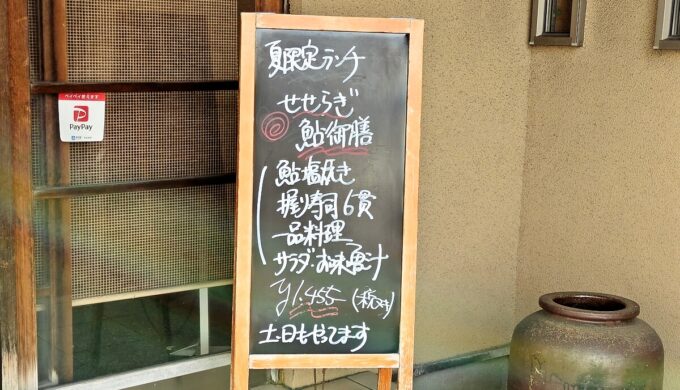 夏限定ランチ
せせらぎ
鮎御膳
鮎塩焼き
握り寿司6貫
一品料理
サラダ・お味噌汁
¥1.455 (税込)
土日もやってます
PayPay